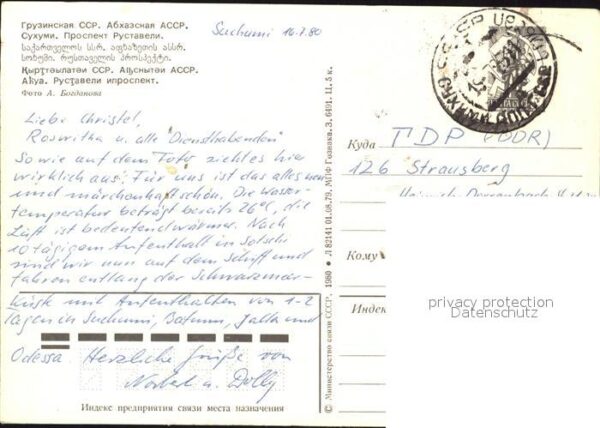 Грузинская ССР. Абхазская АССР.
Сухуми. Проспект Руставели.
საქართველოს სსრ. აფხაზეთის ასსრ.
სოხუმი. რუსთაველის პროსპექტი.
Қырҭтәылатәи ССР. Аҧснытәи АССР.
Аҟуа. Руставели ипроспект.
Фото А. Богданова
Suchumi 16.7.80
Liebe Christel,
Roswitha u. alle "Diensthabenden"
So wie auf dem Foto sieht es hier
wirklich aus. Für uns ist das alles neu
und märchenhaft schön. Die Wasser-
temperatur beträgt bereits 26°C, die
Luft ist bedeutend wärmer. Nach
10 tägigem Aufenthalt in Sotschi
sind wir nun auf dem Schiff und
fahren entlang der Schwarzmeer-
küste mit Aufenthalten von 1-2
Tagen in Suchumi, Batumi, Jalta und
Odessa. Herzliche Grüße von
Norbert u. Dolly
Индекс предприятия связи места назначения
© Министерство связи СССР. 1980 Л 82141 01.08.79. МПФ Гознака. З. 6491. Ц. 5 к.
Куда ГДР (DDR)
126 Strausberg
Кому
Индекс
privacy protection
Datenschutz